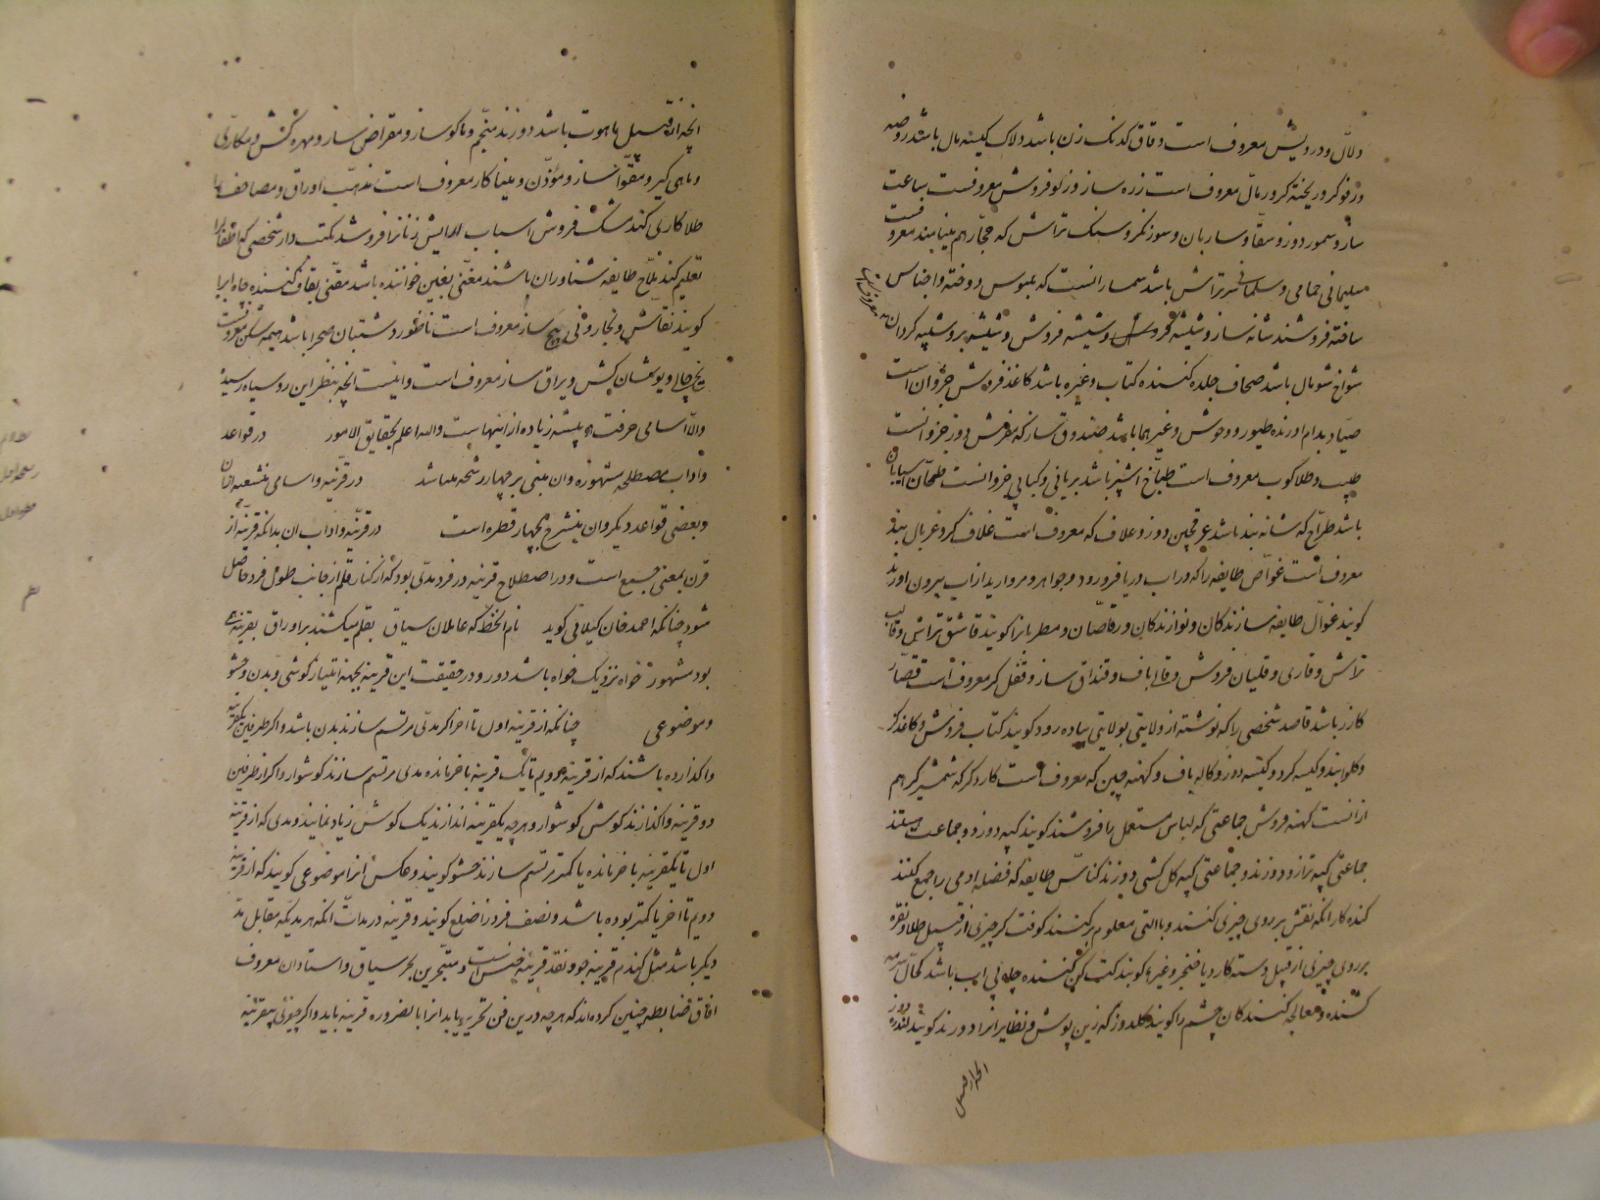 دلال و درویش معروف است دقاق کدنک زن باشد دلاک کیسه مال باشد روضه
و رفوکر و ریخته کر و رمال معروف است زره ساز و زلو فروش معروفست ساعت
ساز و سمور دوز و سقا و ساربان و سوزنکر و سنک تراش که حجار هم مینامند معروفست
سلیمانی حمامی و سلمانی سرتراش باشد سمسار انست که ملبوس دوخته و اجناس
ساخته فروشند شانه ساز و شیشه کر و شیشه فروش و شیشه بر و شیشه کردان
شواخ شومال باشد صحاف جلد کننده کتاب و غیره باشد کاغذ فروش جزو ان است
صیاد بدام اورنده طیور و وحوش و غیرهما باشد صندوق ساز که مفرش دوز جزو انست
طبیب و طلاکوب معروف است طباخ اشپز باشد بریانی و کبابی جزو انست طحان اسیابان
باشد طراح که شانه بند باشد عرقچین دوز و علاف که معروف است غلاف کر و غربال بند
معروف است غواص طایفه را که در اب دریا فرو رود و جواهر و مروارید از اب بیرون اورند
کویند غوال طایفه سازندکان و نوازندکان و رقاصان و مطربانرا کویند قاشق تراش و قالب
تراش و قاری و قلیان فروش و قالی باف و قنداق ساز و قفل کر معروف است قصار
کازر باشد قاصد شخصی را که نوشته از ولایتی بولایتی پیاده رود کویند کتاب فروش و کاغذ کر
و کلابند و کیسه کر و کیسه دوز و کلاه باف و کهنه چین که معروف است کاردکر که شمشیرکر هم
از انست کهنه فروش جماعتی که لباس مستعمل را فروشند کویند کپه دوز دو جماعت هستند
جماعتی کپه ترازو دوزند و جماعتی کپه کل کشی دوزند کناس طایفه که فضله ادمی را جمع کنند
کنده کار انکه نقش بر روی چیزی کنند و با التی معلوم بر کنند کوفت کر چیزی از قبیل طلا و نقره
بر روی چیزی از قبیل دسته کارد یا خنجر و غیره کوبند کت کن کننده چاه بی اب باشد کحال سرمه
کشنده و معالجه کنندکان چشم را کویند کلدوز که زین پوش و نظایر انرا دوزند کویند لندره دوز
انچه از قبیل
انچه از قبیل ماهوت باشد دوزند منجم و ماکو ساز و مقراض ساز و مهره کش و مکاری
و ماهی کیر و مقوا ساز و مؤذن و مینا کار معروف است مذهب اوراق و مصاحف را
طلا کاری کند مشک فروش اسباب الایش زنانرا فروشد مکتب دار شخصی که اطفالرا
تعلیم کند ملاح طایفه شناوران باشند مغنی بغین خواننده باشد مقنی بقاف کننده چاه ابرا
کویند نقاش و نجار و نی پیچ ساز معروف است ناطور دشتبان صحرا باشد هیمه شکن معروفست
یخ چالی و یوشان کش و یراق ساز معروف است و اینست انچه بنظر این روسیاه رسید
والا اسامی حرفت پیشه زیاده از اینهاست والله اعلم بحقایق الامور در قواعد
و اداب مصطلحه مشهوره و ان مبنی بر چهار رشحه میباشد در قرینه و اسامی منشعبه ان
و بعضی قواعد دیکر و ان منشرح بچهار قطره است در قرینه و اداب ان بدانکه قرینه از
قرن بمعنی جمع است و در اصطلاح قرینه در فرد مدی بود که از کنار قلم از جانب طول فرد حاصل
شود چنانکه احمد خان کیلانی کوید نام الخط که عاملان سیاق بقلم میکشند بر اوراق بقرینه
بود مشهور خواه نزدیک خواه باشد دور و در حقیقت این قرینه بجهة امتیاز کوشی و بدن و حشو
و موضوعی چنانکه از قرینه اول تا اخر اکر مدی مرتسم سازند بدن باشد و اکر طرفین یکقرینه
واکذارده باشند که از قرینه دویم تا یک قرینه باخر مانده مدی مرتسم سازند کوشوار و اکر از طرفین
دو قرینه واکذارند کوش کوشوار و هر چه یکقرینه اندازند یک کوش زیاد نمایند و مدی که از قرینه
اول تا یکقرینه باخر مانده یا کمتر مرتسم سازند حشو کویند و عکس انرا موضوعی کویند که از قرینه
دویم تا اخر یا کمتر بوده باشد و نصف فرد را ضلع کویند و قرینه در مدات انکه هر مدیکه مقابل مد
دیکر باشد مثل کندم قرینه جو و نقد قرینه جنس است و متبحرین بحر سیاق و استادان معروف
افاق ضابطه چنین کرده اند که هر چه درین فن تحریر یابد انرا بالضروره قرینه باید و اکر چیزی بیقرینه